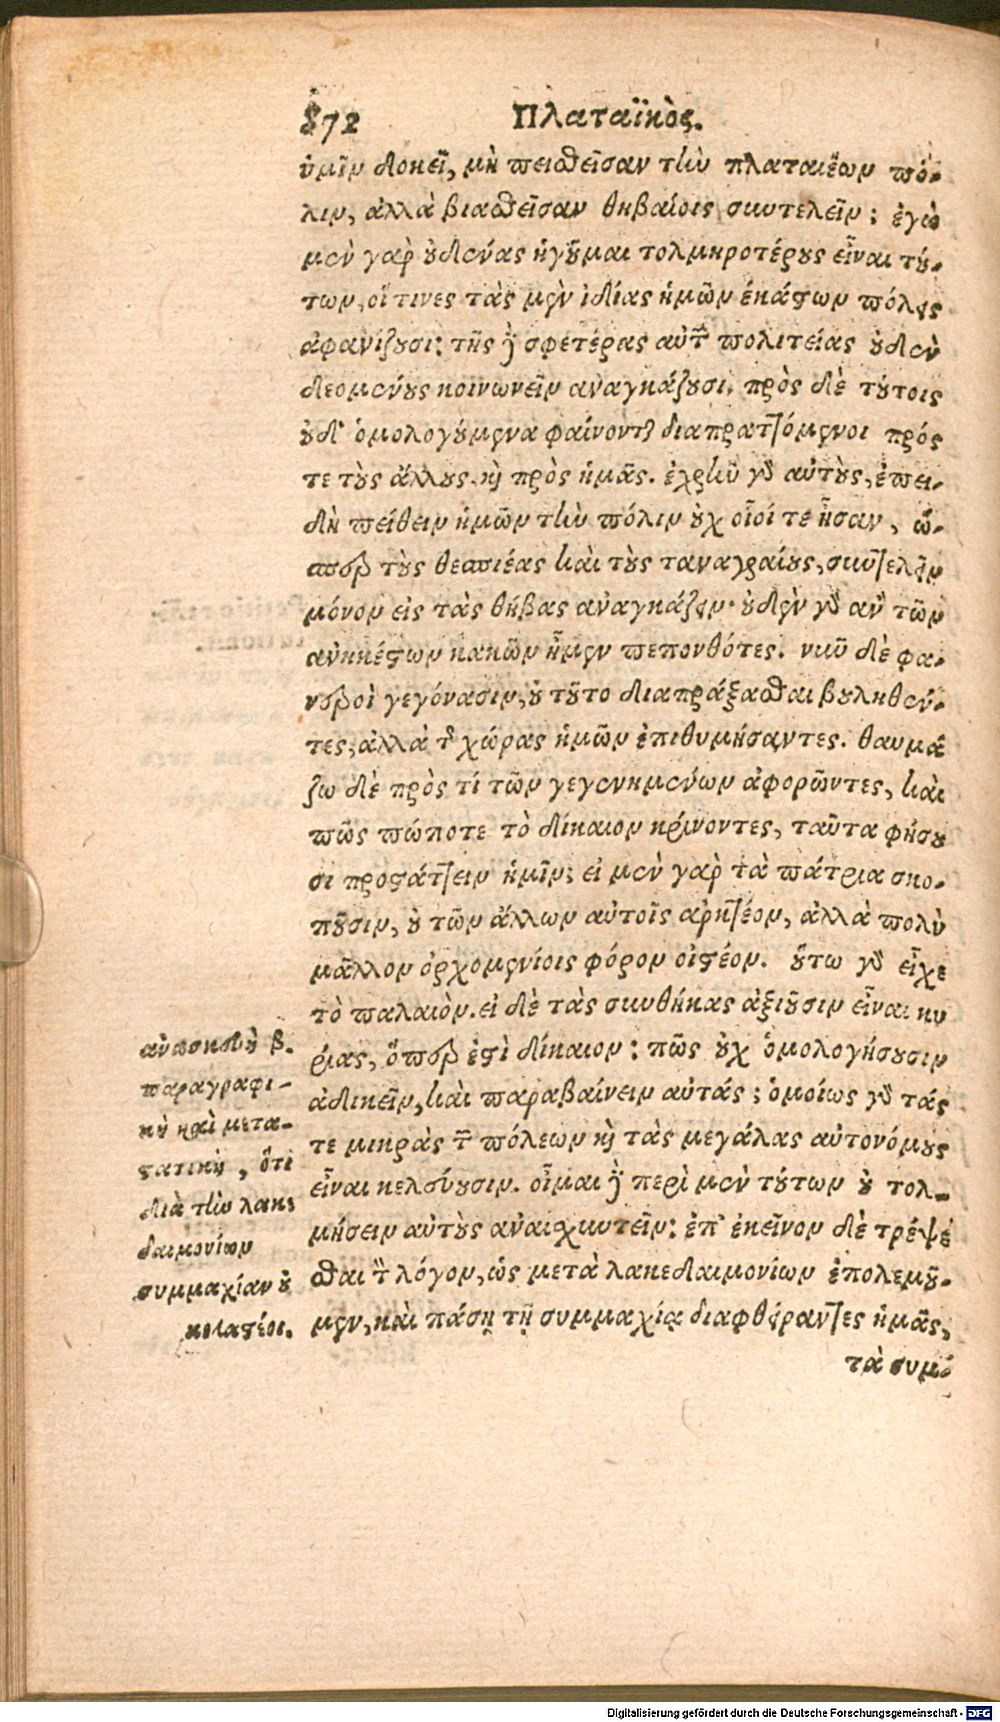 872 Πλαταϊκὸς.
ὑμῖν δοκεῖ, μὴ πεισθεῖσαν τὴν πλαταιέων πό-
λιν, ἀλλὰ βιασθεῖσαν θηβαίοις συντελεῖν; ἐγὼ
μὲν γὰρ οὐδένας ἡγοῦμαι τολμηροτέρους εἶναι τού-
των, οἵ τινες τὰς μὲν ἰδίας ἡμῶν ἑκάστων πόλεις
ἀφανίζουσι: τῆς δὲ σφετέρας αὐτῶν πολιτείας οὐδὲν
δεομένους κοινωνεῖν ἀναγκάζουσι. πρὸς δὲ τούτοις
οὐδ' ὁμολογούμενα φαίνονται διαπραττόμενοι πρός
τε τοὺς ἄλλους καὶ πρὸς ἡμᾶς. ἐχρῆν γὰρ αὐτοὺς, ἐπει-
δὴ πείθειν ἡμῶν τὴν πόλιν οὐχ οἷοί τε ἦσαν, ὥ-
σπερ τοὺς θεσπιέας καὶ τοὺς ταναγραίους, συντελεῖν
μόνον εἰς τὰς θήβας ἀναγκάζειν· οὐδὲν γὰρ ἂν τῶν
ἀνηκέστων κακῶν ἦμεν πεπονθότες. νῦν δὲ φα-
νεροὶ γεγόνασιν, οὐ τοῦτο διαπράξασθαι βουληθέν-
τες, ἀλλὰ τῆς χώρας ἡμῶν ἐπιθυμήσαντες. θαυμά
ζω δὲ πρὸς τί τῶν γεγενημένων ἀφορῶντες, καὶ
πῶς πώποτε τὸ δίκαιον κρίνοντες, ταῦτα φήσου
σι προστάττειν ἡμῖν; εἰ μὲν γὰρ τὰ πάτρια σκο-
ποῦσιν, οὐ τῶν ἄλλων αὐτοῖς ἀρκτέον, ἀλλὰ πολὺ
μᾶλλον ὀρχομενίοις φόρον οἰστέον. οὕτω γὰρ εἶχε
τὸ παλαιόν. εἰ δὲ τὰς συνθήκας ἀξιοῦσιν εἶναι κυ
ρίας, ὅπερ ἐστὶ δίκαιον: πῶς οὐχ ὁμολογήσουσιν
ἀδικεῖν, καὶ παραβαίνειν αὐτάς; ὁμοίως γὰρ τάς
τε μικρὰς τῶν πόλεων καὶ τὰς μεγάλας αὐτονόμους
εἶναι κελεύουσιν. οἶμαι δὲ περὶ μὲν τούτων οὐ τολ-
μήσειν αὐτοὺς ἀναισχυντεῖν: ἐπ' ἐκεῖνον δὲ τρέψε
σθαι τὸν λόγον, ὡς μετὰ λακεδαιμονίων ἐπολεμοῦ-
μεν, καὶ πάσῃ τῇ συμμαχίᾳ διαφθείραντες ἡμᾶς,
τὰ συμ-
ἀνασκευὴ β.
παραγραφι-
κὴ καὶ μετα-
στατικὴ, ὅτι
διὰ τὴν λακε
δαιμονίων
συμμαχίαν οὐ
κολαστέοι.
Digitalisierung gefördert durch die Deutsche Forschungsgemeinschaft - DFG